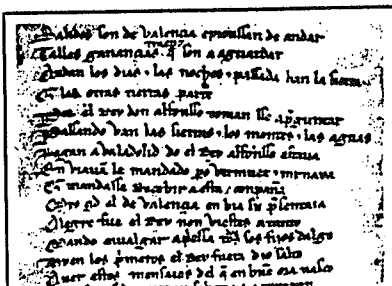 Salidos son de valencia e pienssan de andar
Tales ganancias traen q̃ son a aguardar
Andan los dias ⁊ las noches ⁊ passada han la sierra
Q̃ las otras tierras parte
Por el Rey don alfonsso toman sse a p̃guntar
Passando van las sierras ⁊ los montes ⁊ las aguas
Legan a valadolid do el Rey alfonsso estaua
En viaua le mandado p̱o vermuez ⁊ minaya
Q̃ mandasse Reçebir a esta conpaña
Myo çid el de valençia en bia su p̃sentaia
Alegre fue el Rey non viestes atanto
Mando caualgar apriessa todos sos fijos dalgo
Hyen los p̃meros el Rey fuera dio salto
A uer estos mensaies del q̃ en buẽ ora nasco